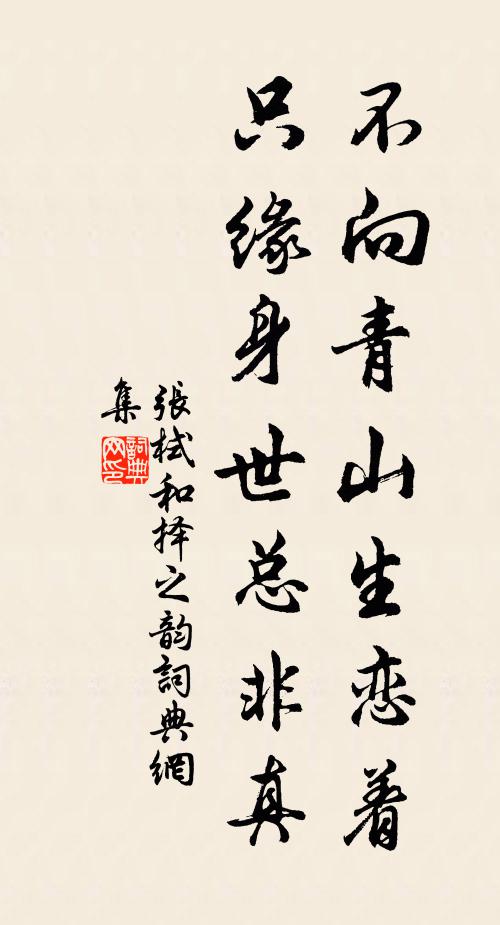 不向青山生恋着
只缘身世总非真
張栻和择之韵詞典網
集
詞典网印